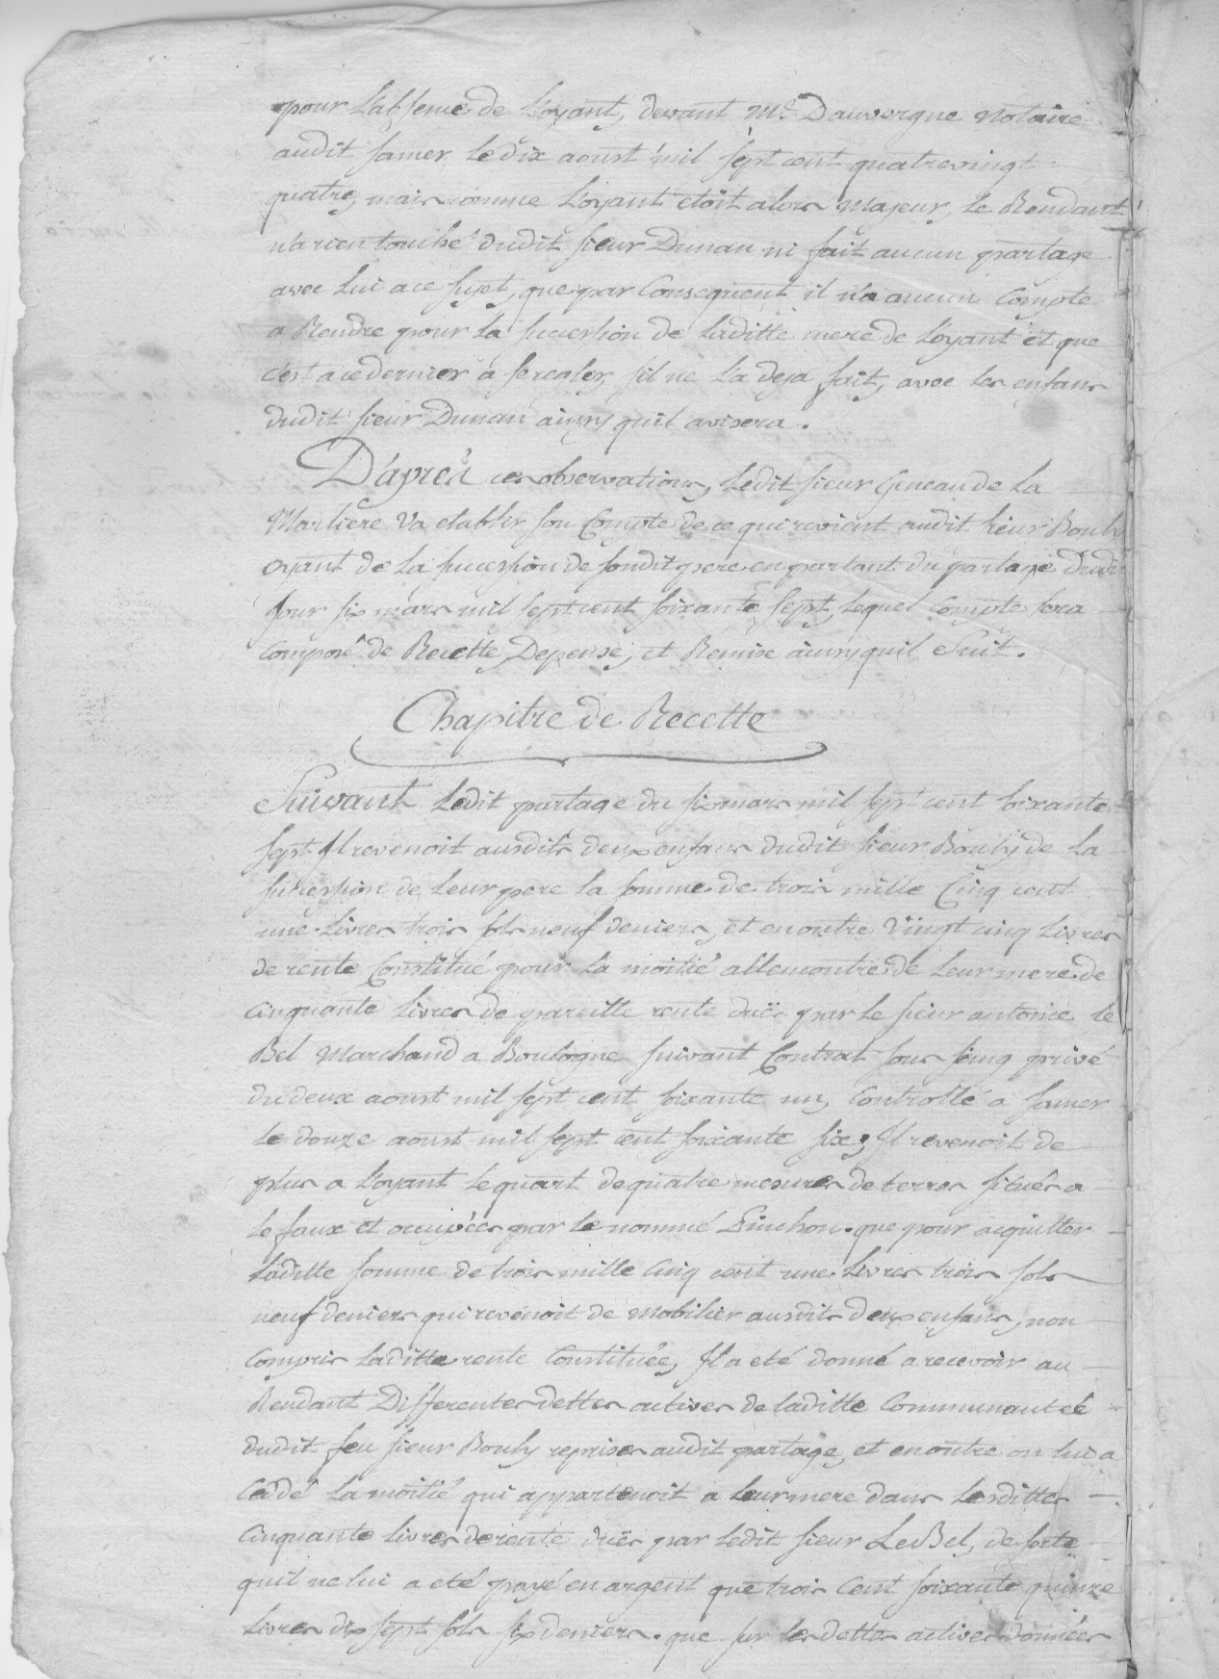 pour l'absence de l'oyant, devant Me Dauvergne Notaire
audit samer le dix aoust mil sept cent quatrevingt
quatre, mais comme l'oyant etoit alors majeur, le Rendant
n'a rien touché dudit sieur Dunan ni fait aucun partage
avec lui a ce sujet, que par Consequent il n'a aucun Compte
a Rendre pour la succession de laditte mere de l'oyant et que
c'est a ce dernier a se regler, s'il ne l'a deja fait, avec les enfans
dudit sieur Dunan ainsy qu'il avisera.
D'après ces observations, ledit sieur Geneau de la
Marliere va etablir son Compte de ce qui revient audit sieur Bouly
oyant de la succession de sondit pere en partant du partage dudit
jour six mars mil sept cent soixante sept, lequel Compte sera
Composé de Recette, Depense, et Remise ainsy qu'il suit.
Chapitre de Recette
Suivant ledit partage du six mars mil sept cent soixante
sept Il revenoit ausdits deux enfans dudit sieur Bouly de la
succession de leur pere la somme de trois mille Cinq cent
une livres trois sols neuf deniers, et en outre vingt cinq livres
de rente Constitué pour la moitié allemontre de leur mere de
cinquante livres de pareille rente duës par le sieur antoine le
Bel Marchand a Boulogne suivant Contrat sous seing privé
du deux aoust mil sept cent soixante un, Controllé a samer
le douze aoust mil sept cent soixante six, Il revenoit de
plus a l'oyant le quart de quatre mesures de terres situées a
le faux et occupées par le nommé Pinchon. que pour acquitter
laditte somme de trois mille Cinq cent une livres trois sols
neuf deniers qui revenoit de Mobilier ausdits deux enfans, non
Compris laditte rente Constituée, Il a eté donné a recevoir au
Rendant Differentes dettes actives de laditte Communauteé
dudit feu sieur Bouly reprises audit partage, et en outre on lui a
Cédé la moitié qui appartenoit a leur mere dans lesdittes
Cinquante livres de rente duës par ledit sieur Le Bel, de sorte
qu'il ne lui a eté payé en argent que trois Cent soixante quinze
livres dix sept sols six deniers. que sur les dettes actives données